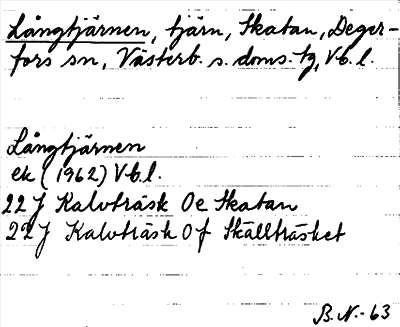 Långtjärnen, tjärn, Skatan, Deger-
fors sn, Västerb. s. doms. tg, Vb. l.
Långtjärnen
ek (1962) Vb. l.
22 J Kalvträsk 0e Skatan
22 J Kalvträsk 0f Skällträsket
B. N. - 63